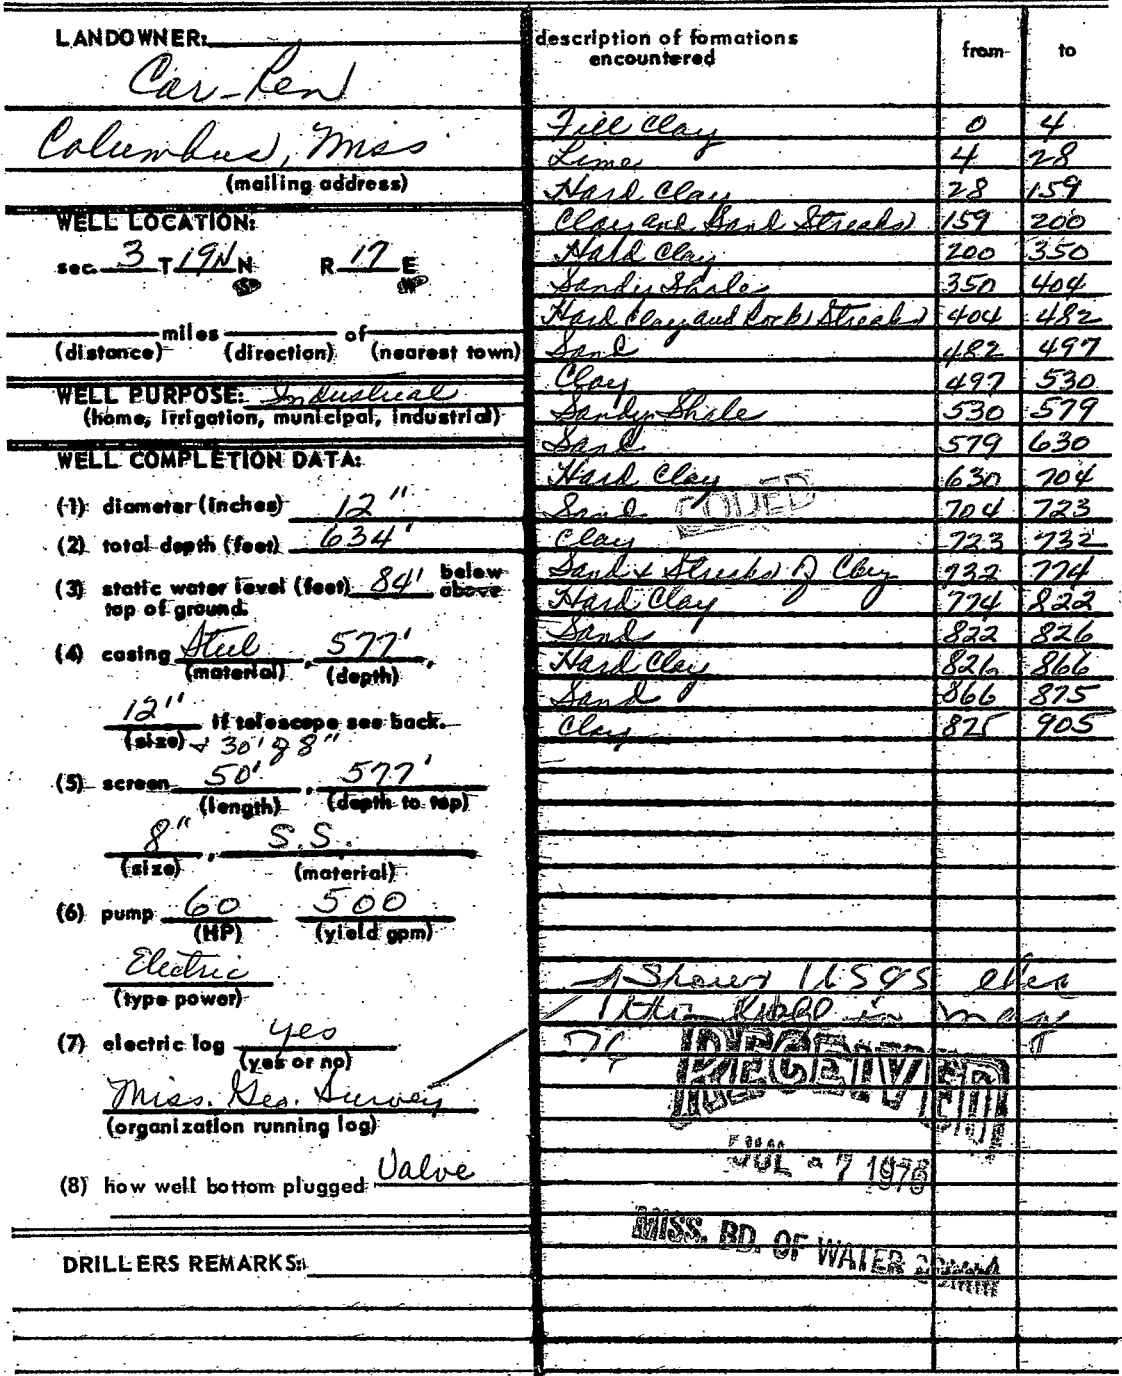 LANDOWNER:
Car-Ren
Columbus, Miss
(mailing address)
WELL LOCATION:
sec. 3 T 19N N R 17 E
miles of
(distance) (direction) (nearest town)
WELL PURPOSE: Industrial
(home, irrigation, municipal, industrial)
WELL COMPLETION DATA:
(1) diameter (inches) 12"
(2) total depth (feet) 634'
(3) static water level (feet) 84' below above
top of ground.
(4) casing Steel, 577',
(material) (depth)
12" if telescope see back.
(size) + 30' of 8"
(5) screen 50', 577'
(length) (depth to top)
8", S.S.
(size) (material)
(6) pump 60 500
(HP) (yield gpm)
Electric
(type power)
(7) electric log yes
(yes or no)
Miss. Geo. Survey
(organization running log)
(8) how well bottom plugged Valve
DRILLERS REMARKS:
description of formations encountered from to
Fill Clay 0 4
Lime 4 28
Hard Clay 28 159
Clay and Sand Streaks 159 200
Hard Clay 200 350
Sandy Shale 350 404
Hard Clay and Rock Streaks 404 482
Sand 482 497
Clay 497 530
Sandy Shale 530 579
Sand 579 630
Hard Clay 630 704
Sand 704 723
CODED
Clay 723 732
Sand + Streaks of Clay 932 774
Hard Clay 774 822
Sand 822 826
Hard Clay 826 866
Sand 866 875
Clay 875 905
USGS
in
RECEIVED
JUL - 7 1976
MISS. BD. OF WATER COMM